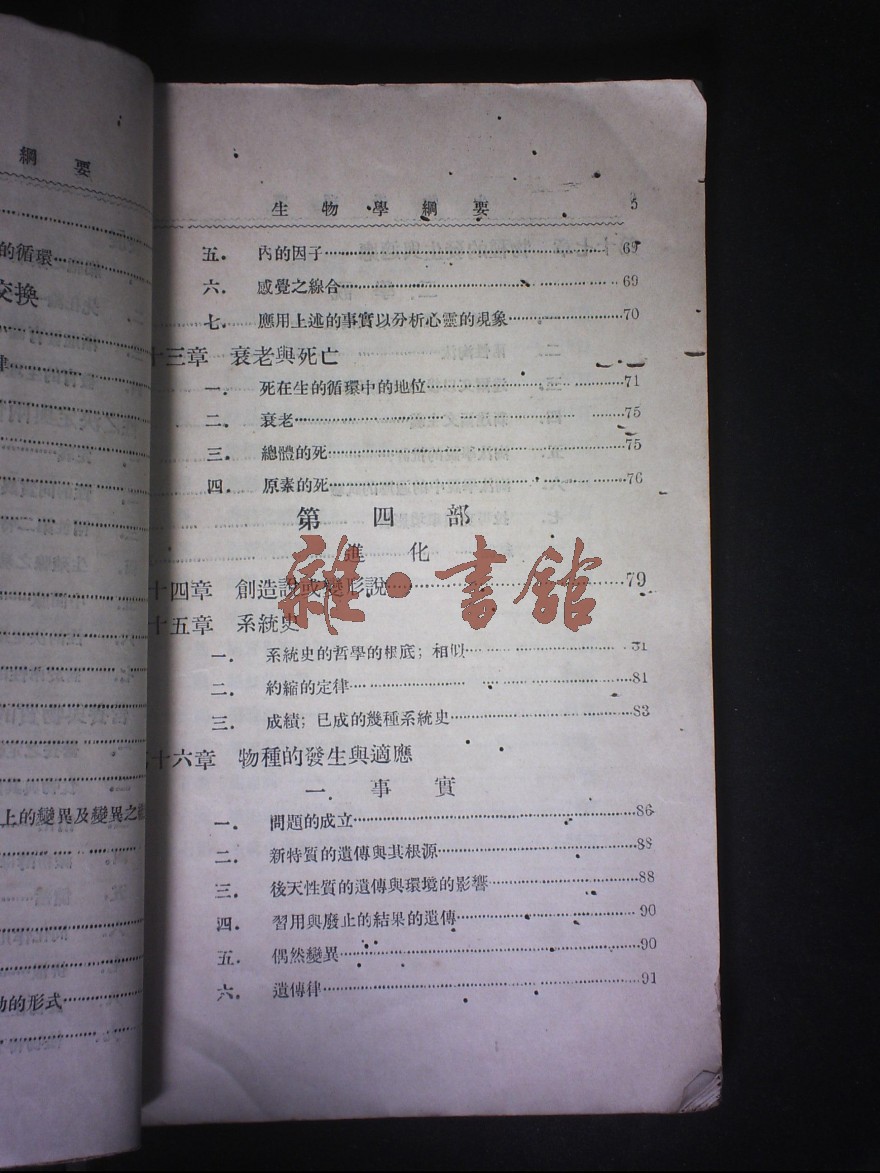 綱要
的循環
交換
律
上的變異及變異之
動的形式
生物學綱要 5
五. 內的因子 69
六. 感覺之線合 69
七. 應用上述的事實以分析心靈的現象 70
十三章 衰老與死亡
一. 死在生的循環中的地位 71
二. 衰老 75
三. 總體的死 75
四. 原素的死 76
第四部
進化
十四章 創造說或變形說 79
十五章 系統史
一. 系統史的哲學的根底；相似 81
二. 約縮的定律 81
三. 成績；已成的幾種系統史 83
十六章 物種的發生與適應
一. 事實
一. 問題的成立 86
二. 新特質的遺傳與其根源 88
三. 後天性質的遺傳與環境的影響 88
四. 習用與廢止的結果的遺傳 90
五. 偶然變異 90
六. 遺傳律 91
雜·書館